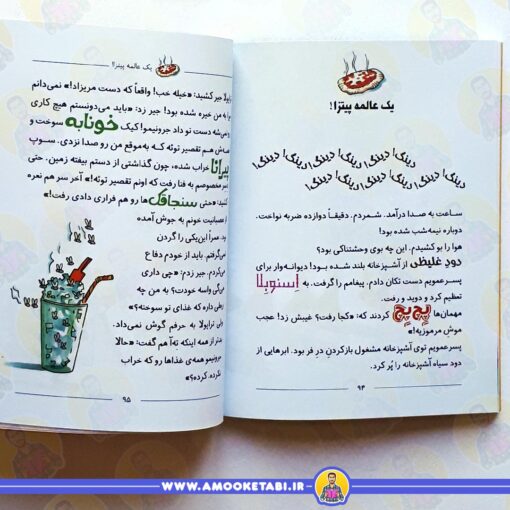 یک عالمه پیتزا!
دینگ! دینگ! دینگ! دینگ! دینگ!
دینگ! دینگ! دینگ! دینگ! دینگ!
ساعت به صدا درآمد. شمردم. دقیقاً دوازده ضربه نواخت.
دوباره نیمه‌شب شده بود!
هوا را بو کشیدم. این چه بوی وحشتناکی بود؟
دودِ غلیظی از آشپزخانه بلند شده بود! دیوانه‌وار برای
پسرعمویم دست تکان دادم. پیغامم را گرفت. به اِستوبِلا
تعظیم کرد و دوید و رفت.
مهمان‌ها پِچ‌پِچ کردند که: «کجا رفت؟ غیبش زد! عجب
موش مرموزیه!»
پسرعمویم توی آشپزخانه مشغول بازکردنِ درِ فر بود. ابرهایی از
دود سیاه آشپزخانه را پُر کرد.
۹۴
یک عالمه پیتزا!
پولا جیر کشید: «خیله خب! واقعاً که دست مریزاد!» نمی‌دانم
به من خیره شده بود! جیر زد: «باید می‌دونستم هیچ کاری
نمی‌شه دست تو داد جرونیمو! کیک خونابه سوخت و
همش هم تقصیر توئه که به‌موقع من رو صدا نزدی. سوپ
پیرانا خراب شده، چون گذاشتی از دستم بیفته زمین. حتی
مخصوصم به فنا رفت که اونم تقصیر توئه!» آخر سر هم نعره
کشید: «حتی سنجاقک‌ها رو هم فراری دادی رفت!»
عصبانیت خونم به جوش آمده
بود. موآ این‌یکی را گردن
نمی‌گرفتم. باید از خودم دفاع
می‌کردم. جیر زدم: «چی داری
می‌گی واسه خودت؟ به من چه
ربطی داره که غذای تو سوخته؟»
ولی تراپولا به حرفم گوش نمی‌داد.
بدتر از همه اینکه ته‌آ هم گفت: «حالا
جرونیمو همه‌ی غذاها رو که خراب
نکرده. کرده؟»
۹۵
WWW.AMOOKETABI.IR